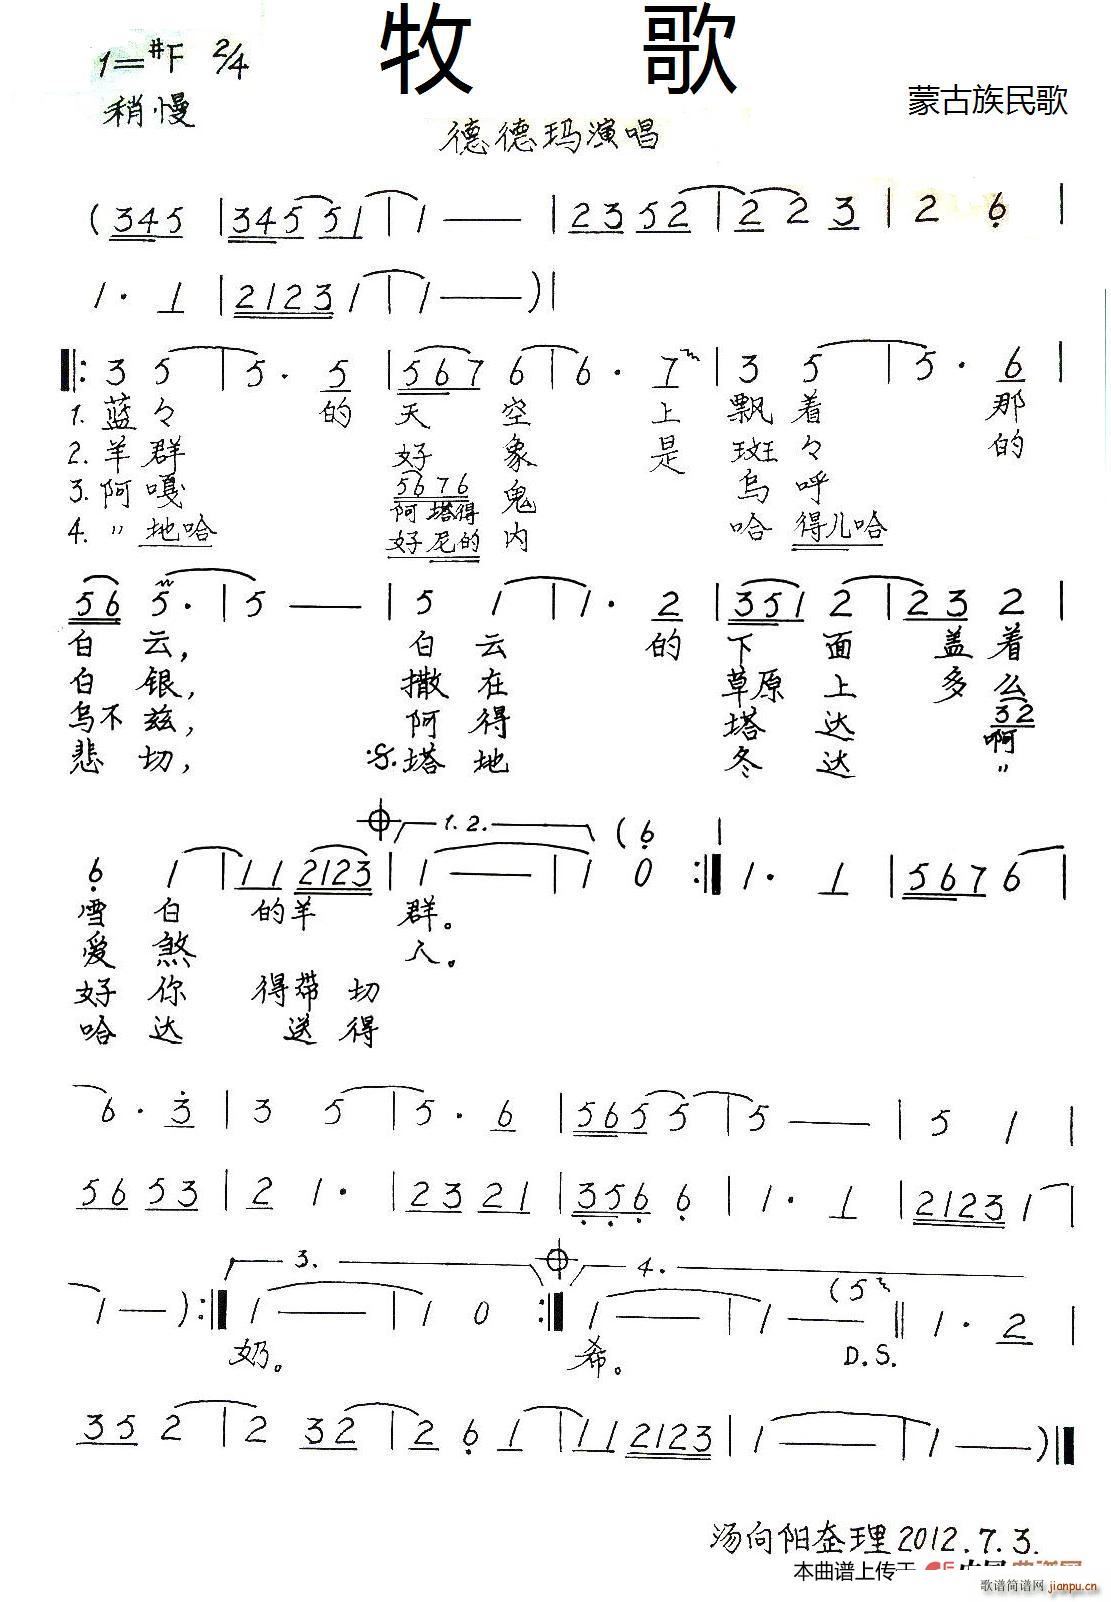 牧 歌
1=#F 2/4
稍慢
蒙古族民歌
德德玛演唱
(345 |3455 51 | 1 — | 2352 | 2 2 3 | 2 6 |
1· 1 | 2123 1 | 1 — )|
‖: 3 5 | 5· 5 | 567 6 | 6· 7 | 3 5 | 5· 6 |
1. 蓝々 的 天 空 上 飘着 那
2. 羊群 好 象 是 斑々 的
3. 阿嘎 5676 鬼 乌呼
阿塔得
4. 〃地哈 好尼的 内 哈得儿哈
56 5· | 5 — | 5 1 | 1· 2 | 351 2 | 2 3 2 |
白 云, 白云 的 下 面 盖着
白 银, 撒在 草原 上 多么
乌不兹, 阿得 塔 达 32
啊
悲 切, 塔地 冬 达 〃
6 1 | 11 2123 | 1 — | 1 0 :‖ 1· 1 | 567 6 |
1. 2. (6 |
雪白 的羊 群。
爱煞 人。
好你 得带切
哈达 送得
6· 3 | 3 5 | 5· 6 | 5655 | 5 — | 5 1 |
56 53 | 2 1· | 23 21 | 356 6 | 1· 1 | 2123 1 |
3. 4.
1 — ) :‖ 1 — | 1 0 :‖ 1 — | 1 — (5 ‖ 1· 2 |
奶。 希。 D.S.
35 2 | 2 32 | 2 6 1 | 11 2123 | 1 — | 1 — )‖
汤向阳整理 2012.7.3.
本曲谱上传于
歌谱简谱网 jianpu.cn